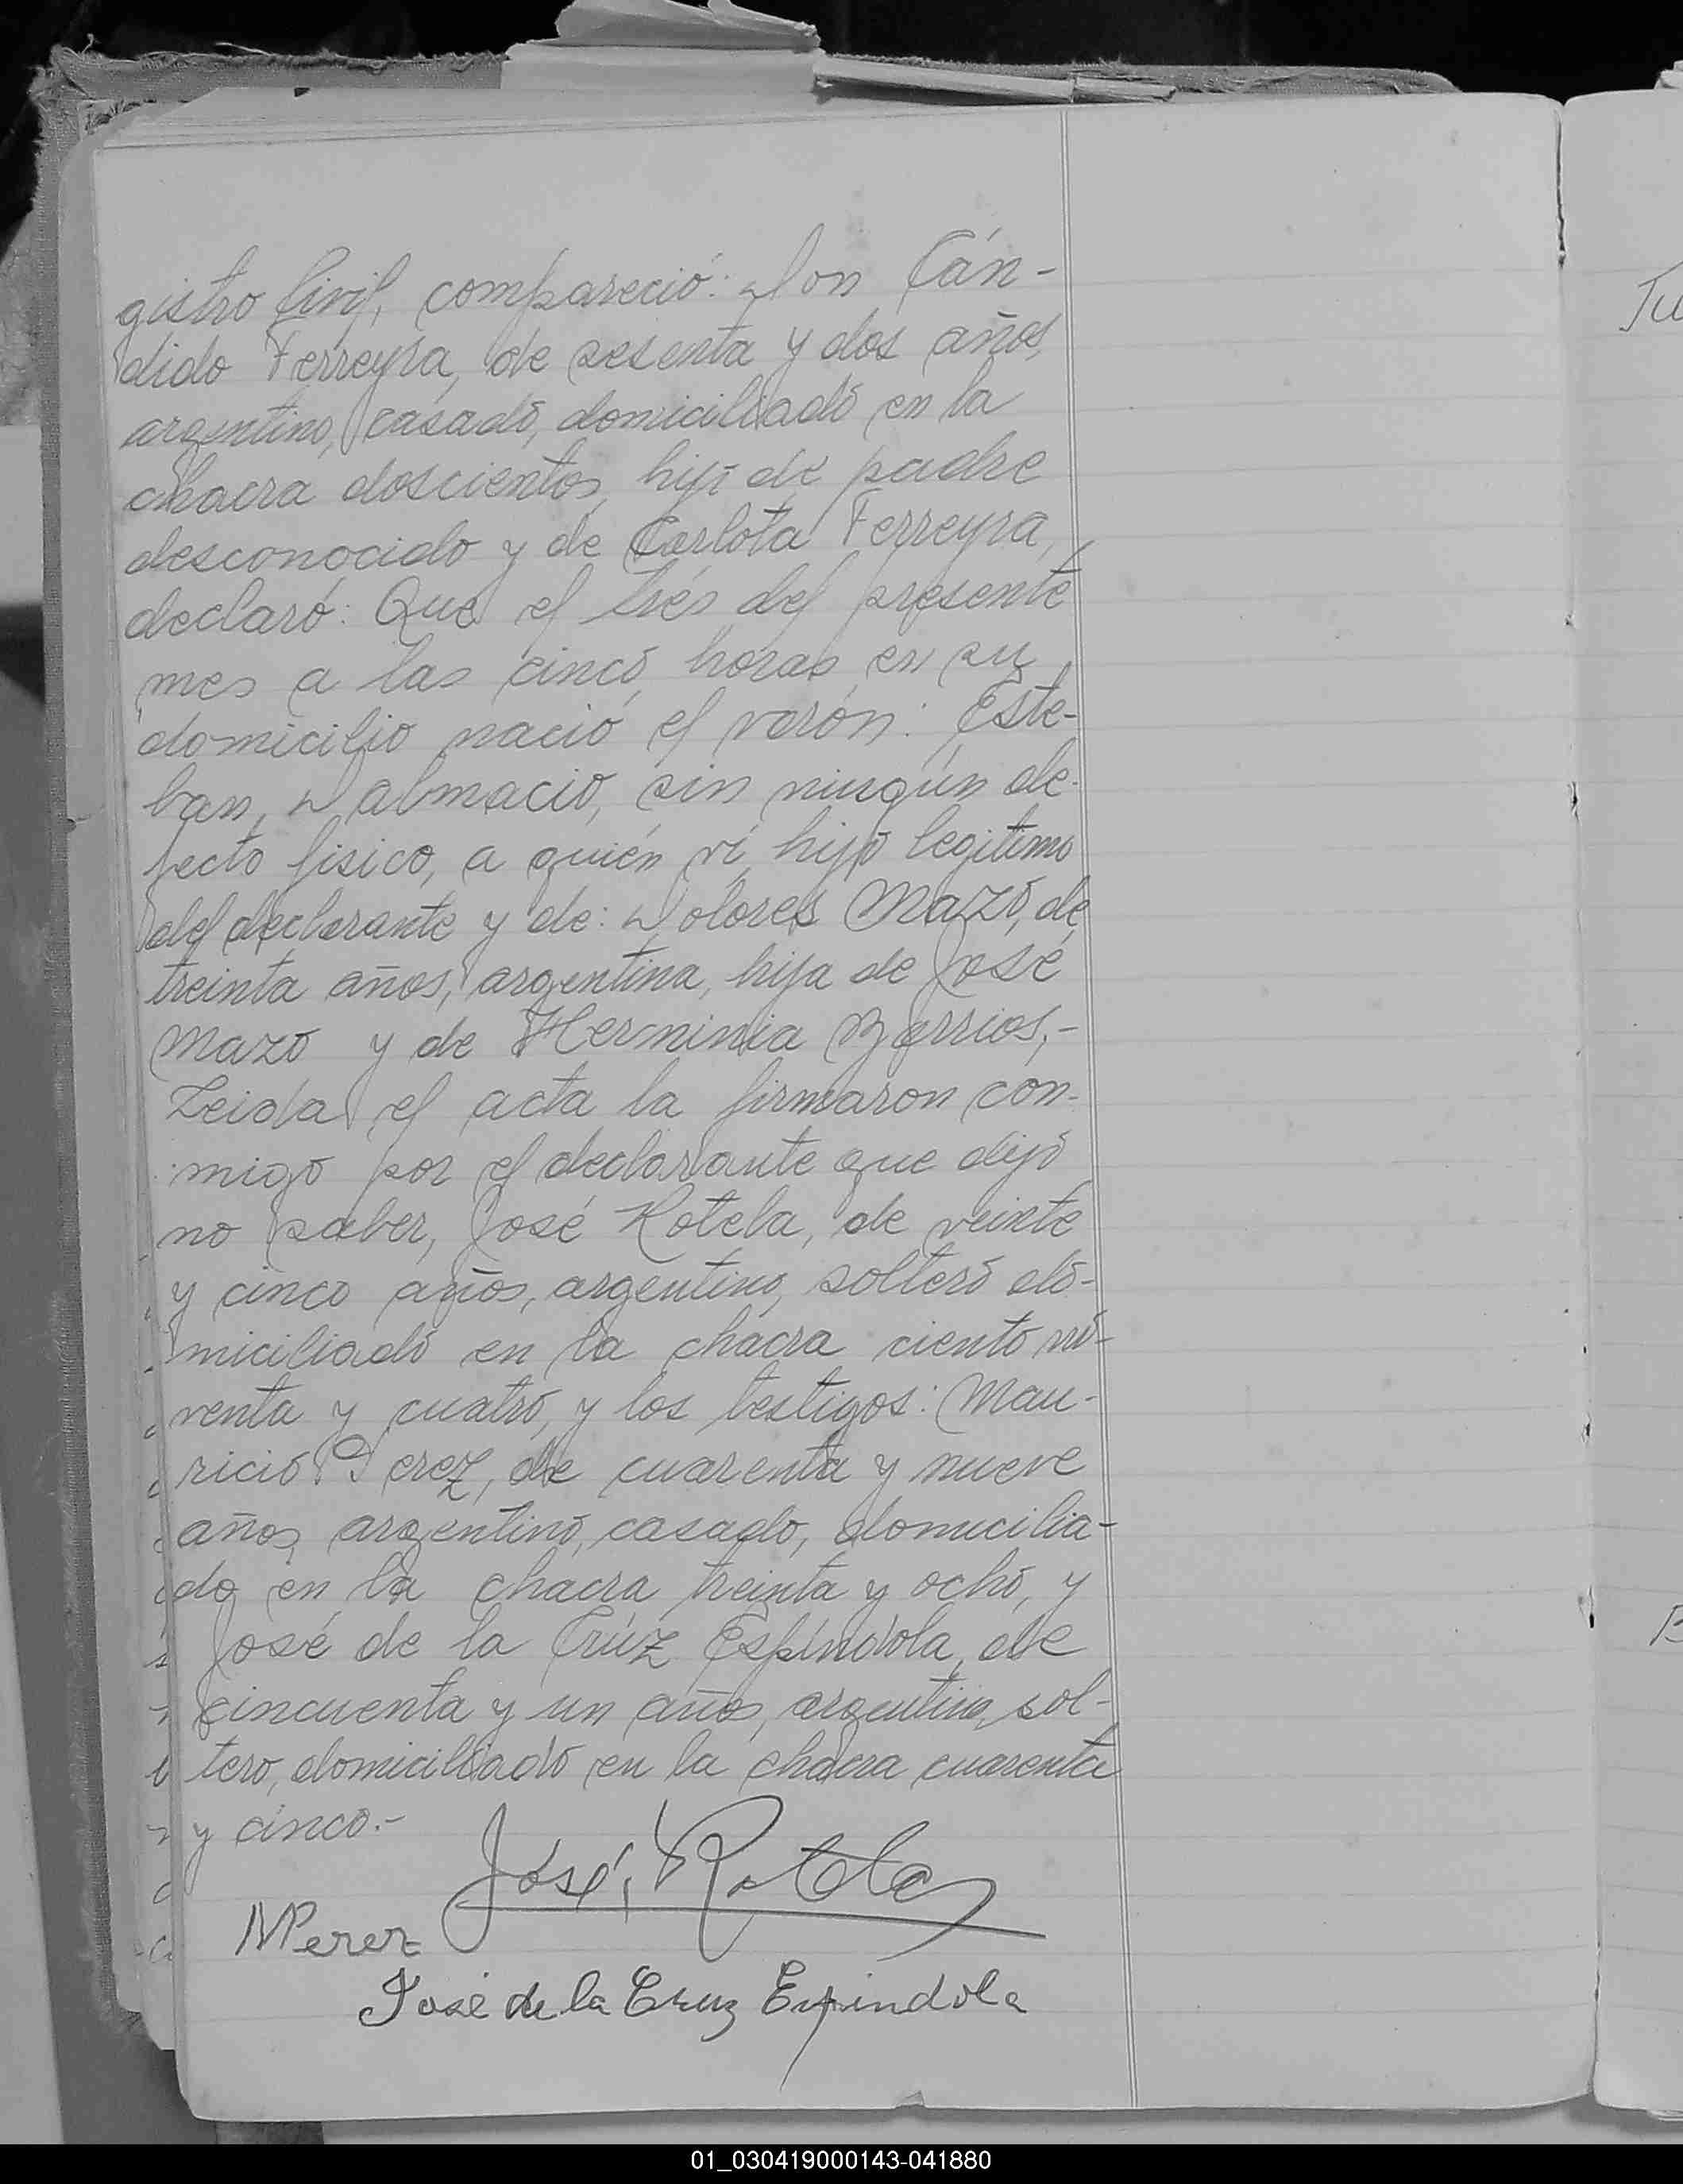 gistro Civil, compareció: Don Cán-
dido Ferreyra, de sesenta y dos años,
argentino, casado, domiciliado en la
chacra doscientos, hijo de padre
desconocido y de Carlota Ferreyra,
declaró: Que el tres del presente
mes a las cinco horas en su
domicilio nació el varón: Este-
ban Dalmacio, sin ningún de-
fecto físico, a quién ví, hijo legitimo
del declarante y de: Dolores Mazó, de
treinta años, argentina, hija de José
Mazó y de Herminia Barrios,-
Leida el acta la firmaron con-
migo por el declarante que dijo
no saber, José Rotela, de veinte
y cinco años, argentino, soltero do-
miciliado en la chacra ciento no-
venta y cuatro, y los testigos: Mau-
ricio Perez, de cuarenta y nueve
años, argentino, casado, domicilia-
do en la chacra treinta y ocho, y
José de la Crúz Espíndola, de
cincuenta y un años, argentino, sol-
tero, domiciliado en la chacra cuarenta
y cinco.-
José Rotela
MPerez
José de la Cruz Espindola
Ju
B
01_030419000143-041880